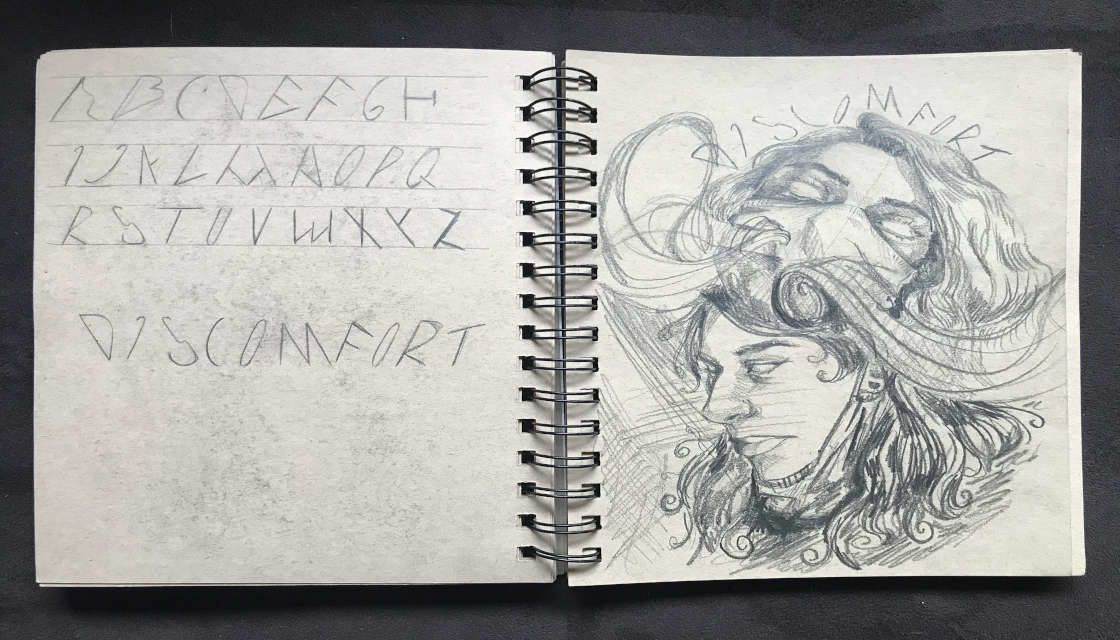 A B C D E F G H
I J K L M N O P Q
R S T U V W X Y Z
DISCOMFORT
DISCOMFORT